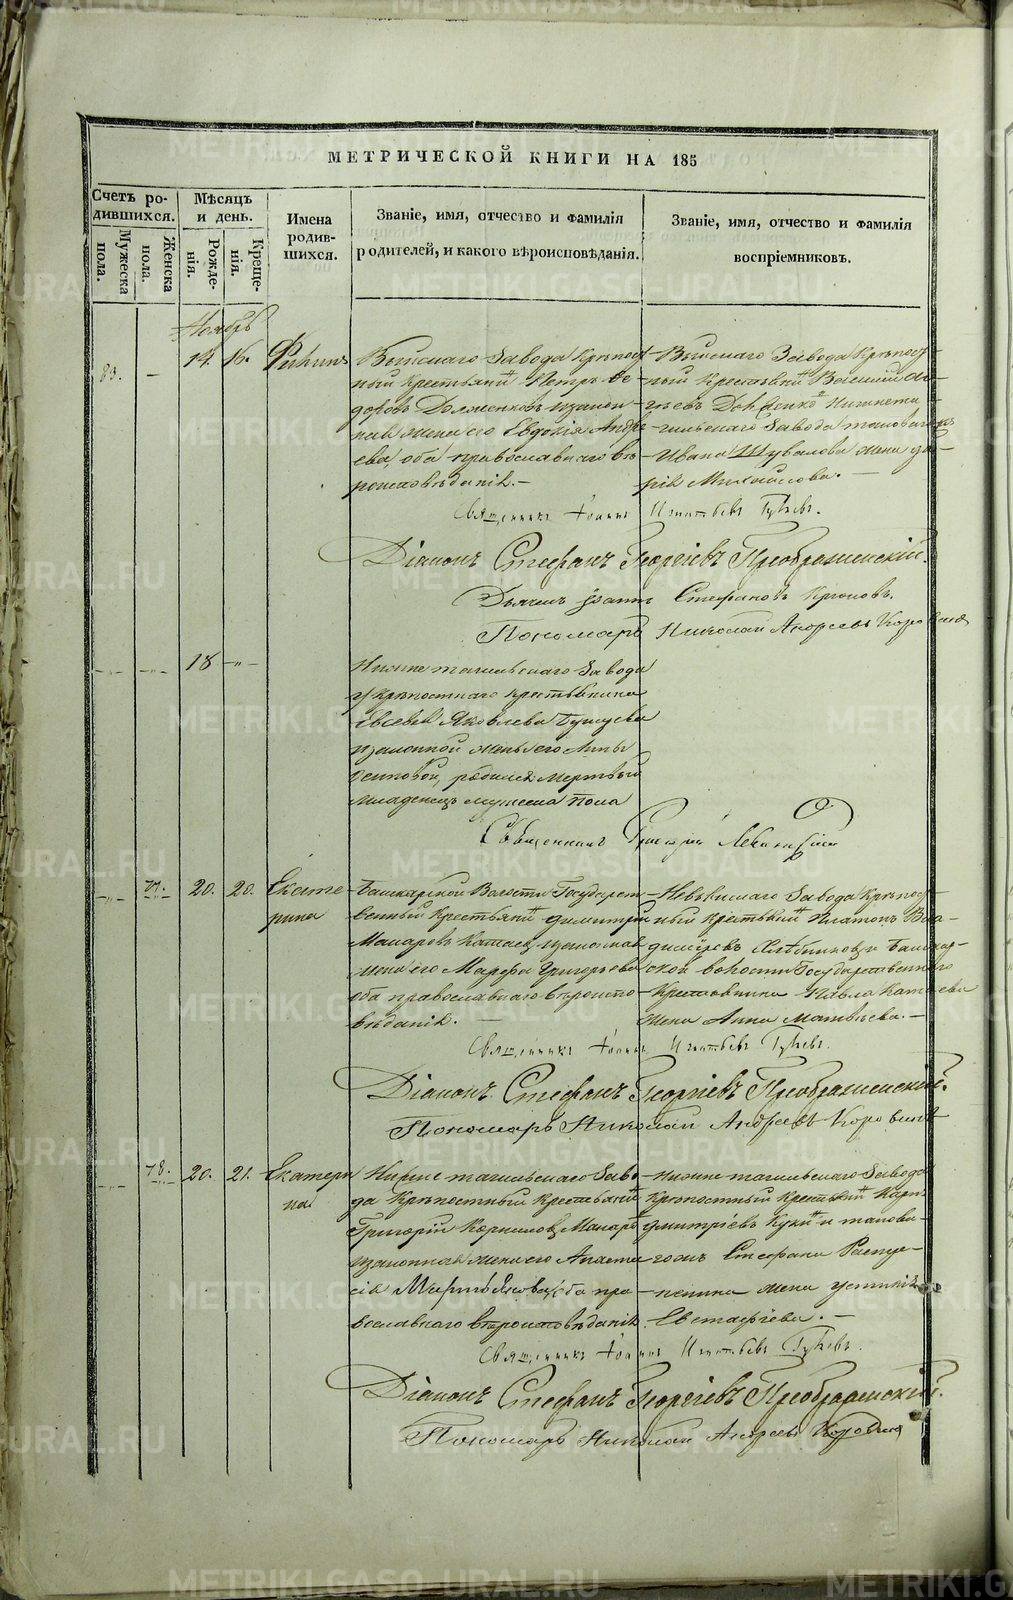 МЕТРИЧЕСКОЙ КНИГИ НА 185
Счетъ родившихся.
Мужеска пола.
Женска пола.
Мѣсяцъ и день.
Рожденія.
Крещенія.
Имена родившихся.
Званіе, имя, отчество и фамилія
родителей, и какого вѣроисповѣданія.
Званіе, имя, отчество и фамилія
воспріемниковъ.
Ноябрь
83. — 14. 16. Филипъ
Выйскаго Завода Крѣпост-
ный Крестьянинъ Петръ Ѳе-
доровъ законная
жена его Евдокія Андре-
ева, оба православнаго вѣ-
роисповѣданія.—
Выйскаго Завода Крѣпост-
ный Крестьянинъ Василій
Нижнета-
гильскаго Завода таковаго жъ
Ивана Шувалова жена Да-
рія Михайлова.—
Священникъ Іоаннъ Игнатьевъ
Діаконъ Стефанъ Георгіевъ Преображенскій.
Дьячекъ Іоаннъ Стефановъ
Пономарь Николай Андреевъ Коровинъ
18 —"—
Нижнетагильскаго Завода
у крѣпостнаго крестьянина
Евсевія Яковлева
законной жены его Анны
Осиповой, родился мертвый
младенецъ мужеска пола
Священникъ Григорій Левицкій
77. 20. 20. Екате-
рина
Башкарской Волости Государст-
венный Крестьянинъ Димитрій
Макаровъ Катаевъ законная
жена его Марфа Григорьева
оба православнаго вѣроиспо-
вѣданія.—
Невьянскаго Завода Крѣпост-
ный Крестьянинъ Платонъ Вла-
диміровъ и Башкар-
ской волости Государственнаго
Крестьянина Павла Катаева
жена Анна Матвѣева.—
Священникъ Іоаннъ Игнатьевъ
Діаконъ Стефанъ Георгіевъ Преображенскій.
Пономарь Николай Андреевъ Коровинъ
78. 20. 21. Екатери
на
Нижнетагильскаго Заво-
да Крѣпостный Крестьянинъ
Григорій Корниловъ
законная жена его Анаста-
сія оба пра-
вославнаго вѣроисповѣданія
Нижнетагильскаго Завода
Крѣпостный Крестьянинъ
Дмитріевъ и таковаго
жъ Стефана
жена Устинія
Евстафіева.—
Священникъ Іоаннъ Игнатьевъ
Діаконъ Стефанъ Георгіевъ Преображенскій.
Пономарь Николай Андреевъ Коровинъ
METRIKI.GASO-URAL.RU